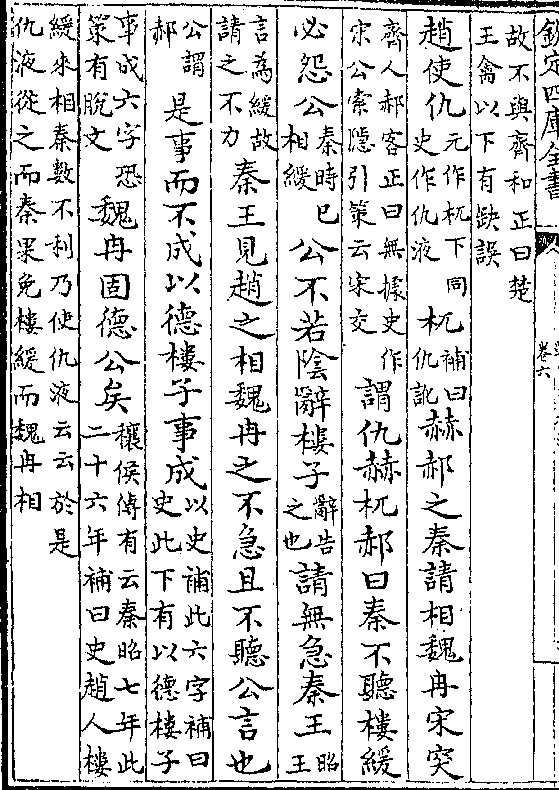 欽定四庫全書
卷六
故不與齊和正曰楚
王禽以下有缺誤
趙使仇元作杌下同史作仇液杌補曰仇訛赫郝之秦請相魏冉宋突
齊人郝客正曰無據史作宋公索隱引策云宋交謂仇赫杌郝曰秦不聽樓緩
必怨公秦時已相緩公不若陰辭樓子辭告之也請無急秦王昭王
言為緩故請之不力秦王見趙之相魏冉之不急且不聽公言也
公謂郝是事而不成以德樓子事成以史補此六字補曰史此下有以德樓子
事成六字恐策有脫文魏冉固德公矣穰侯傳有云秦昭七年此二十六年補曰史趙人樓
緩來相秦數不利乃使仇液云云於是
仇液從之而秦果免樓緩而魏冉相